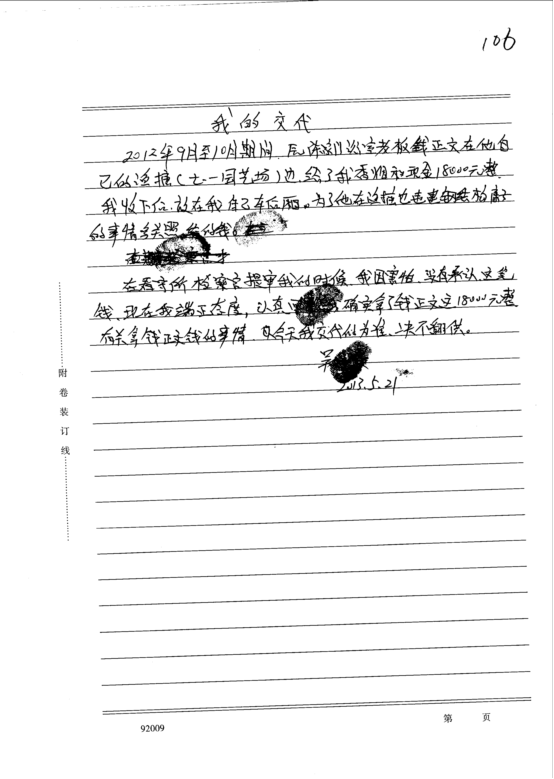 106
我的交代
2012年9月至10月期间，瓦 老板钱正文在他自
己的渣插（七一园艺场）边，给了我香烟和现金18000元整
我收下后，放在我自己车后面。为了他在渣 放房子
的事情多关照，给的钱。
在看守所检察官提审我的时候，我因害怕，没有承认这笔
钱，现在我端正态度，认真 确实拿了钱正文这18000元整
有关拿钱正文钱的事情，以今天我交代的为准，决不翻供。
吴
2013.5.21
附卷装订线
第 页
92009